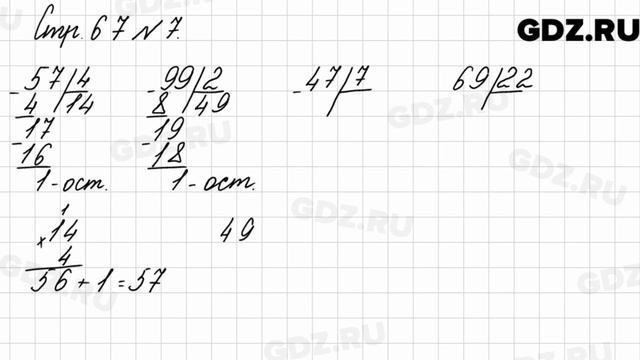 Стр. 67 № 7.
GDZ.RU
- 57 | 4
4 | 14
- 17
16
1 - ост.
- 99 | 2
8 | 49
- 19
18
1 - ост.
- 47 | 7
69 | 22
1
× 14
4
56 + 1 = 57
49
GDZ.RU
GDZ.RU
GDZ.RU
GDZ.RU
GDZ.RU
GDZ.RU
GDZ.RU
GDZ.RU